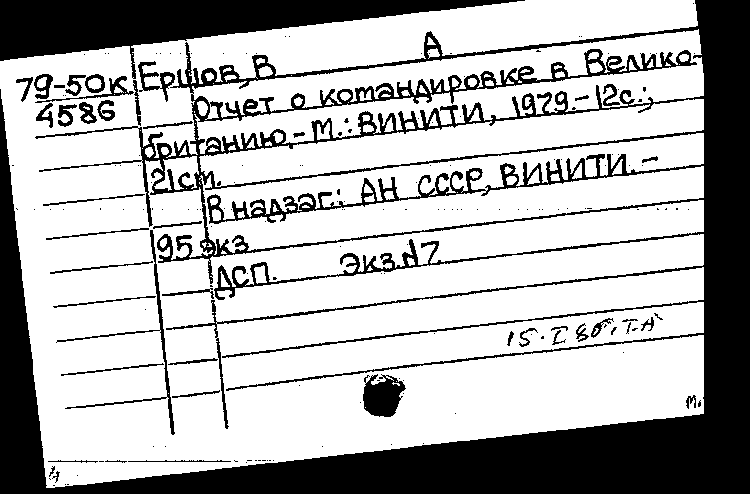 А
79-50к Ершов, В
4586 Отчет о командировке в Велико-
британию.- М.: ВИНИТИ, 1979.-12с.;
21см.
В надзаг.: АН СССР, ВИНИТИ.-
95 экз
ДСП. Экз.N7
15.I 80.